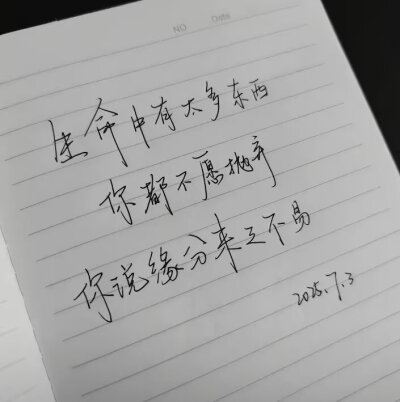 NO
Date
生命中有太多东西
你都不愿抛弃
你说缘分来之不易
2025.7.3